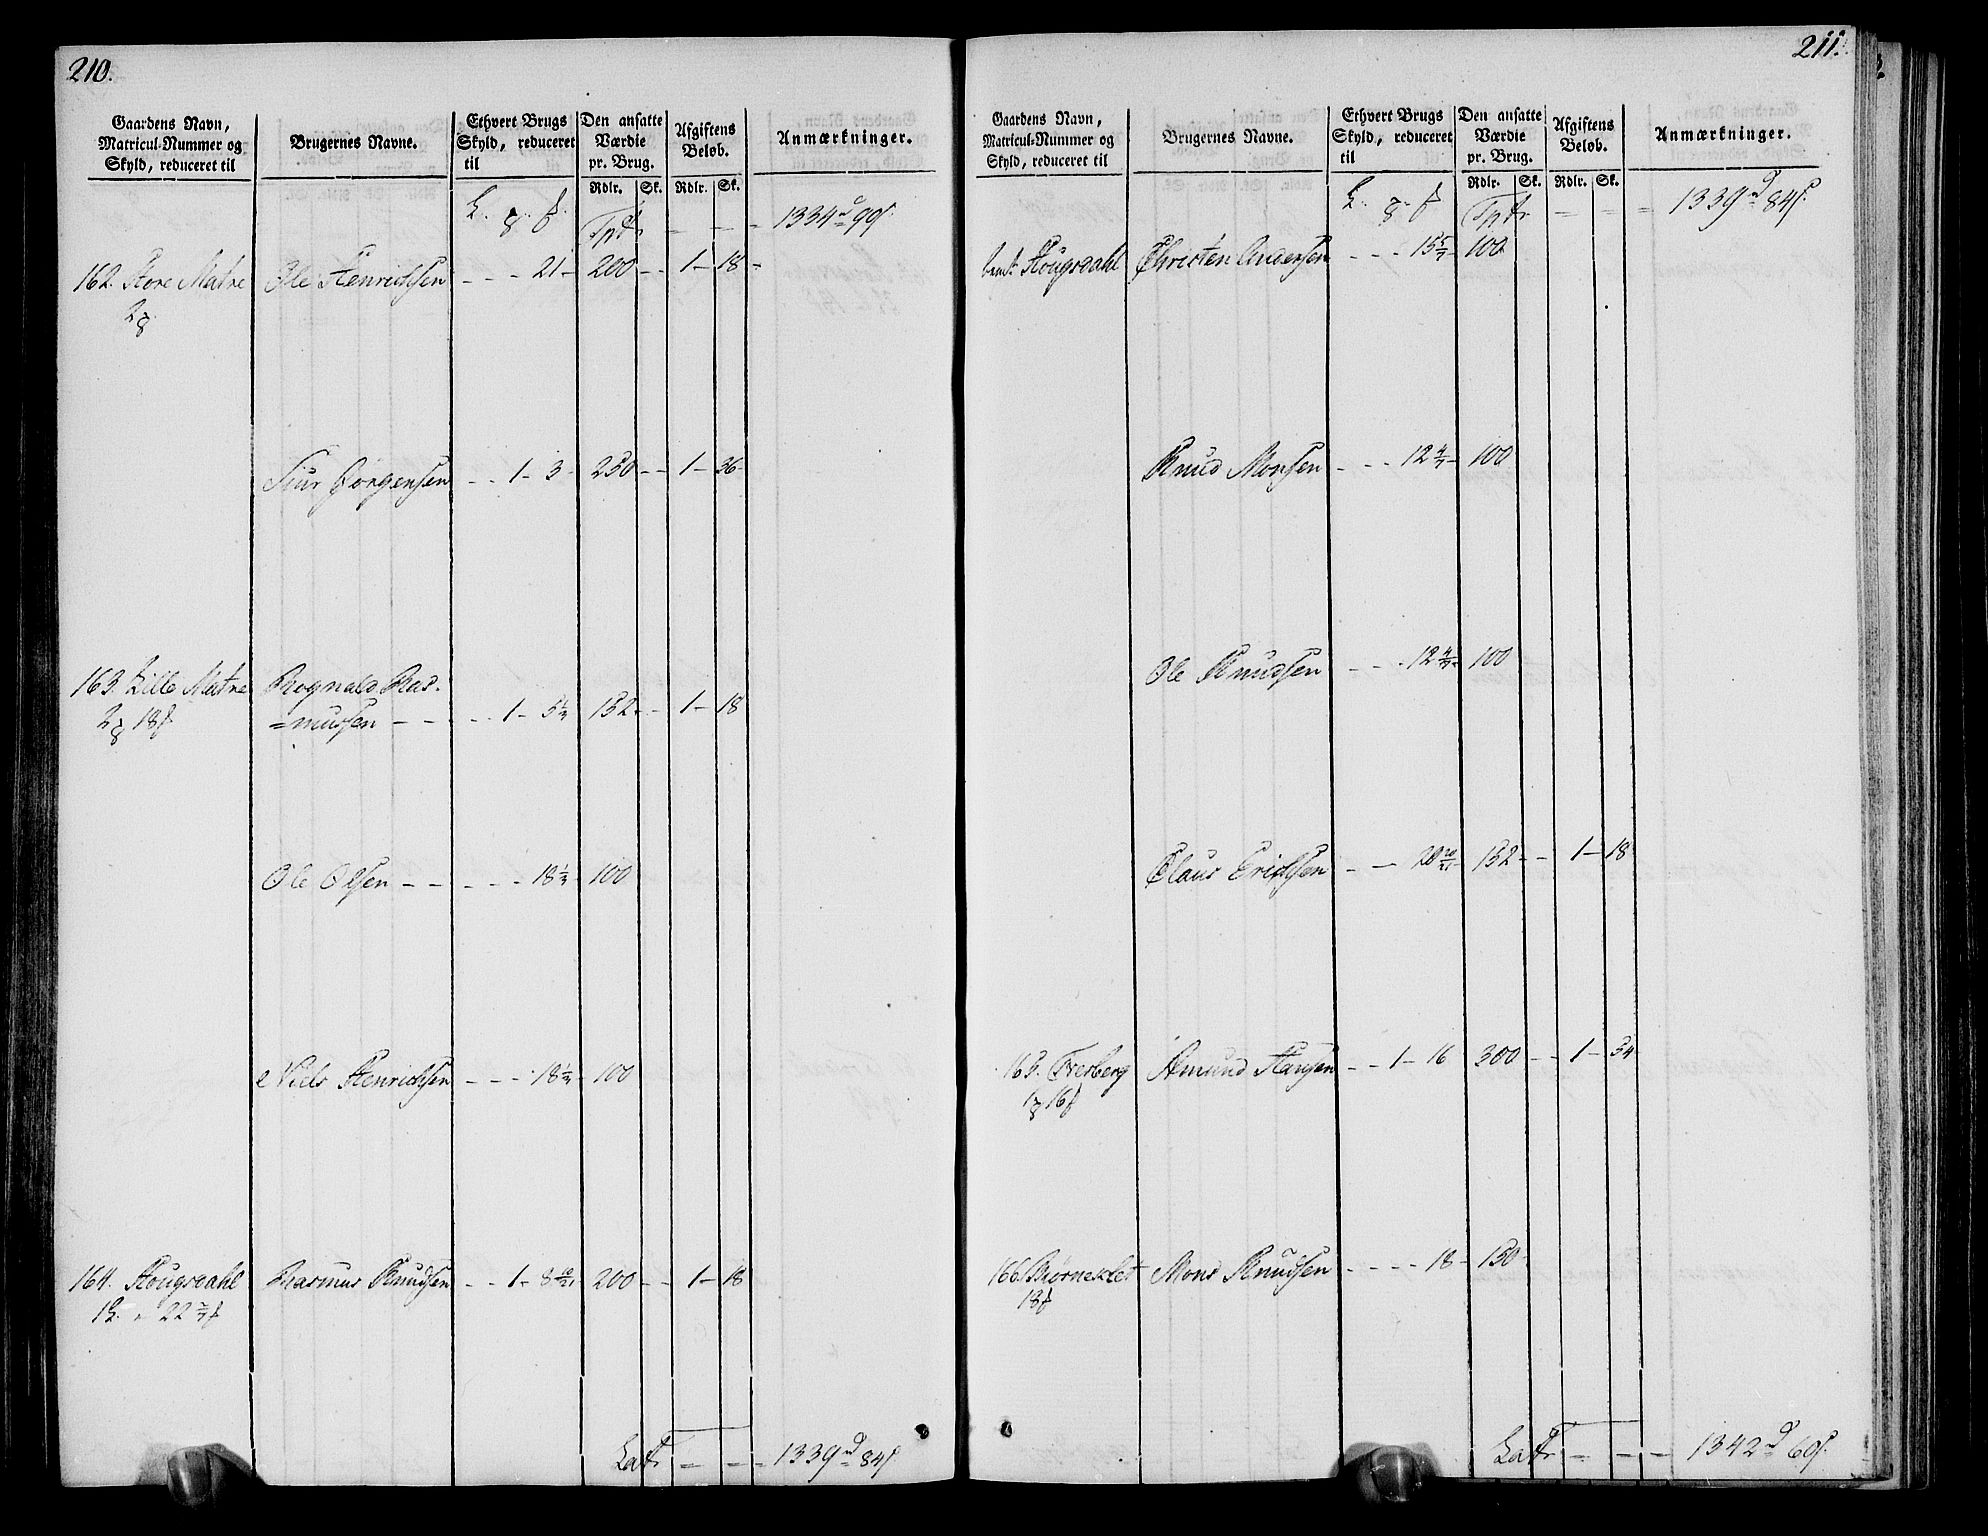 210.
Gaardens Navn, Matricul-Nummer og Skyld, reduceret til
Brugernes Navne.
Ethvert Brugs Skyld, reduceret til
Den ansatte Værdie pr. Brug.
Afgiftens Beløb.
Anmærkninger.
Rdlr. Sk. Rdlr. Sk.
L. 8. f. Tptr - - - 1334 d 99 s.
162. Store Matre Ole Henrichsen - - - 21 - 200 - - 1 - 18 -
2 8
Siur Jørgensen - - 1 - 3 - 250 - - 1 - 36 -
163. Lille Matre Rognald Ras-
2 8 18 f =mussen - - - - 1 - 5 1/7 152 - - 1 - 18
Ole Olsen - - - - - 18 1/7 - 100
Niels Henrichsen - - - 18 1/7 - 100
164. Hougsdahl Rasmus Knudsen - - 1 - 8 10/21 200 - - 1 - 18
1 L. " 22 2/7 f
Latr - - - 1339 d 84 s.
211.
Gaardens Navn, Matricul-Nummer og Skyld, reduceret til
Brugernes Navne.
Ethvert Brugs Skyld, reduceret til
Den ansatte Værdie pr. Brug.
Afgiftens Beløb.
Anmærkninger.
Rdlr. Sk. Rdlr. Sk.
L. 8. f Tptr - - - 1339 d 84 s.
bemt Hougsdahl Christen Andersen - - - 15 5/7 - 100
Knud Monsen - - - 12 4/7 - 100
Ole Knudsen - - - 12 4/7 - 100
Claus Erichsen - - 20 20/21 - 152 - - 1 - 18
165. Tverberg Amund Hansen - - 1 - 16 300 - - 1 - 54
1 8 16 f
166. Biørneslet Mons Knudsen - - - - 18 - 150 -
18 f
Latr - - - 1342 d 60 s.